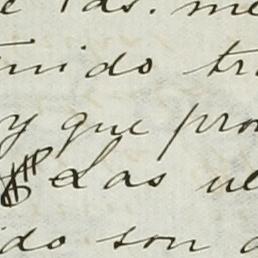 e Tas. me
unido tr
y que pro
Las ve
ido son a